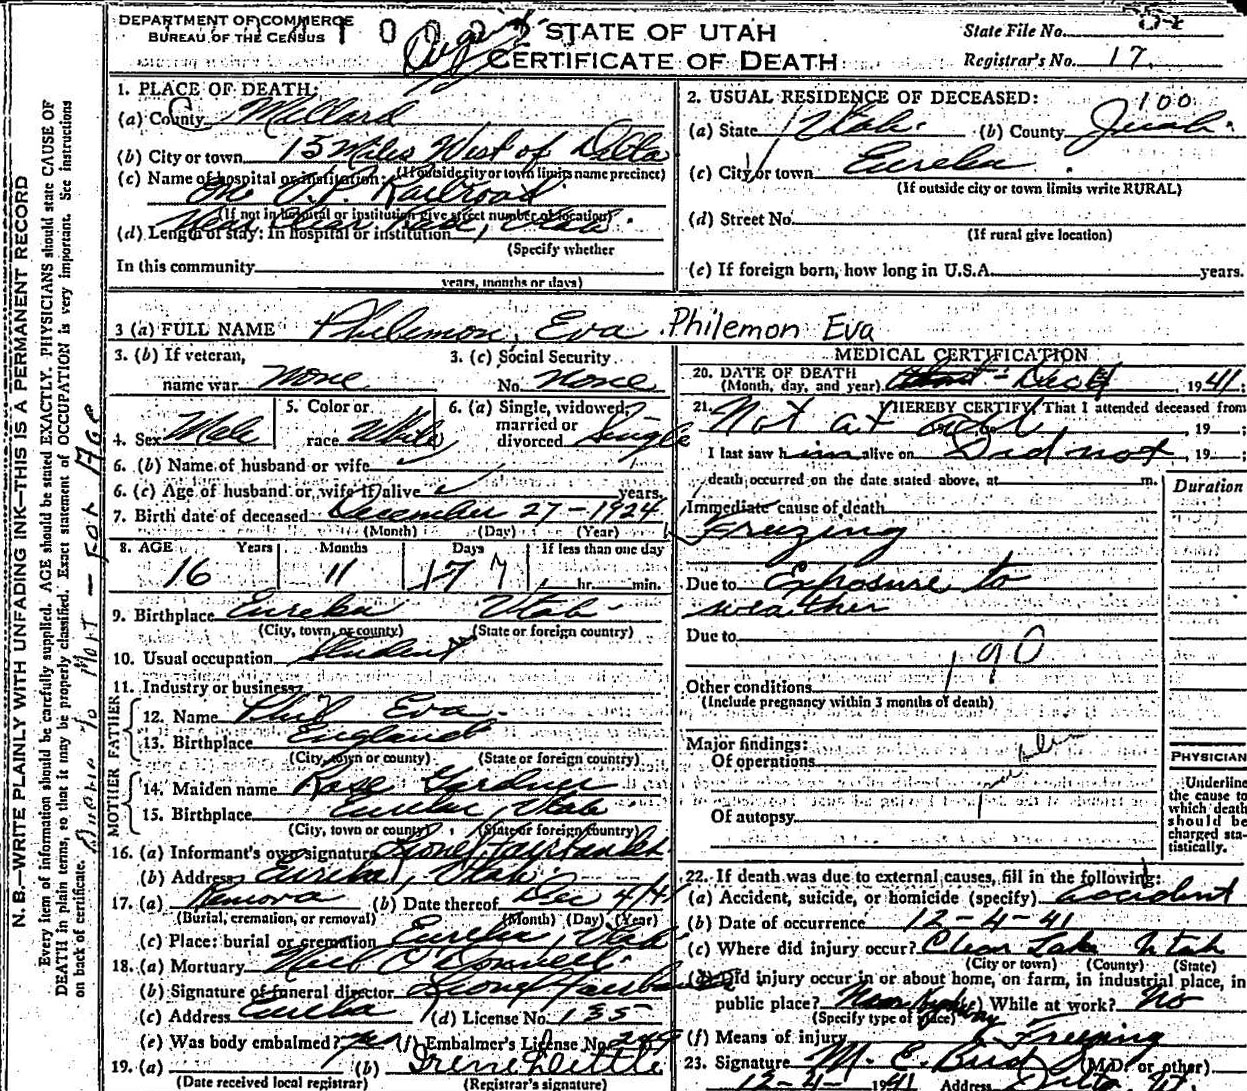 DEPARTMENT OF COMMERCE
BUREAU OF THE CENSUS
STATE OF UTAH
CERTIFICATE OF DEATH
State File No.
Registrar's No. 17.
N. B.—WRITE PLAINLY WITH UNFADING INK—THIS IS A PERMANENT RECORD
Every item of information should be carefully supplied. AGE should be stated EXACTLY. PHYSICIANS should state CAUSE OF
DEATH in plain terms, so that it may be properly classified. Exact statement of OCCUPATION is very important. See instructions
on back of certificate.
For Age
1. PLACE OF DEATH:
(a) County Millard
(b) City or town 15 Miles West of Delta
(If outside city or town limits name precinct)
(c) Name of hospital or institution:
One U.P. Railroad
(If not in hospital or institution give street number or location)
Near Clear Lake, Utah
(d) Length of stay: In hospital or institution
(Specify whether
In this community
years, months or days)
2. USUAL RESIDENCE OF DECEASED: 100
(a) State Utah (b) County Juab
(c) City or town Eureka
(If outside city or town limits write RURAL)
(d) Street No.
(If rural give location)
(e) If foreign born, how long in U.S.A. years.
3 (a) FULL NAME Philemon, Eva Philemon Eva
3. (b) If veteran, name war None
3. (c) Social Security No. None
4. Sex Male
5. Color or race White
6. (a) Single, widowed, married or divorced Single
6. (b) Name of husband or wife
6. (c) Age of husband or wife if alive years.
7. Birth date of deceased December 27-1924
(Month) (Day) (Year)
8. AGE Years Months Days If less than one day
16 11 17 7 hr. min.
9. Birthplace Eureka Utah
(City, town, or county) (State or foreign country)
10. Usual occupation Student
11. Industry or business
FATHER
12. Name Phil Eva
13. Birthplace England
(City, town or county) (State or foreign country)
MOTHER
14. Maiden name Rose Gardner
15. Birthplace Eureka, Utah
(City, town or county) (State or foreign country)
16. (a) Informant's own signature Lionel Fairbanks
(b) Address Eureka, Utah
17. (a) Remova (b) Date thereof Dec 4/41
(Burial, cremation, or removal) (Month) (Day) (Year)
(c) Place: burial or cremation Eureka, Utah
18. (a) Mortuary Neil O'Donnell
(b) Signature of funeral director Lionel Fairbanks
(c) Address Eureka (d) License No. 135
(e) Was body embalmed? yes (f) Embalmer's License No. 269
19. (a) (b) Irene Dettle
(Date received local registrar) (Registrar's signature)
MEDICAL CERTIFICATION
20. DATE OF DEATH
(Month, day, and year) About - Dec 4 1941;
21. I HEREBY CERTIFY, That I attended deceased from
Not at all, 19 ;
I last saw him alive on Did not, 19 ;
death occurred on the date stated above, at m.
Duration
Immediate cause of death
Freezing
Due to Exposure to
weather
Due to
190
Other conditions
(Include pregnancy within 3 months of death)
Major findings:
Of operations
Of autopsy
PHYSICIAN
Underline
the cause to
which death
should be
charged sta-
tistically.
22. If death was due to external causes, fill in the following:
(a) Accident, suicide, or homicide (specify) accident
(b) Date of occurrence 12-4-41
(c) Where did injury occur? Clear Lake Utah
(City or town) (County) (State)
(d) Did injury occur in or about home, on farm, in industrial place, in
public place? Near Highway While at work? No
(Specify type of place)
(f) Means of injury Freezing
23. Signature M. E. Bird (M.D. or other)
12-4-1941 Address